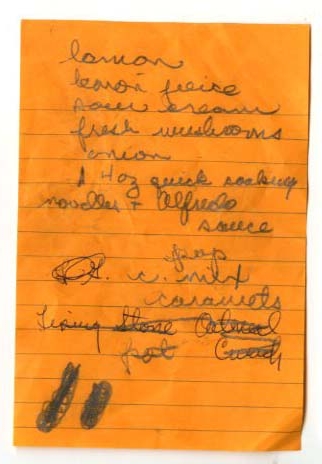 lamon
lemon jeice
sour cream
fresh mushrooms
onion
1 4 oz quick cooking
noodles + Alfredo
sauce
pop
c. mix
caramels
Stone Oatmeal
pot